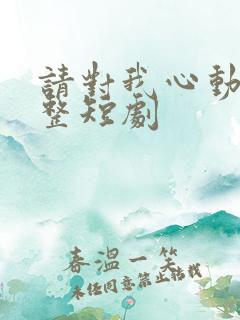 請對我心動
整短劇
春溫一笑
未經同意禁止轉載